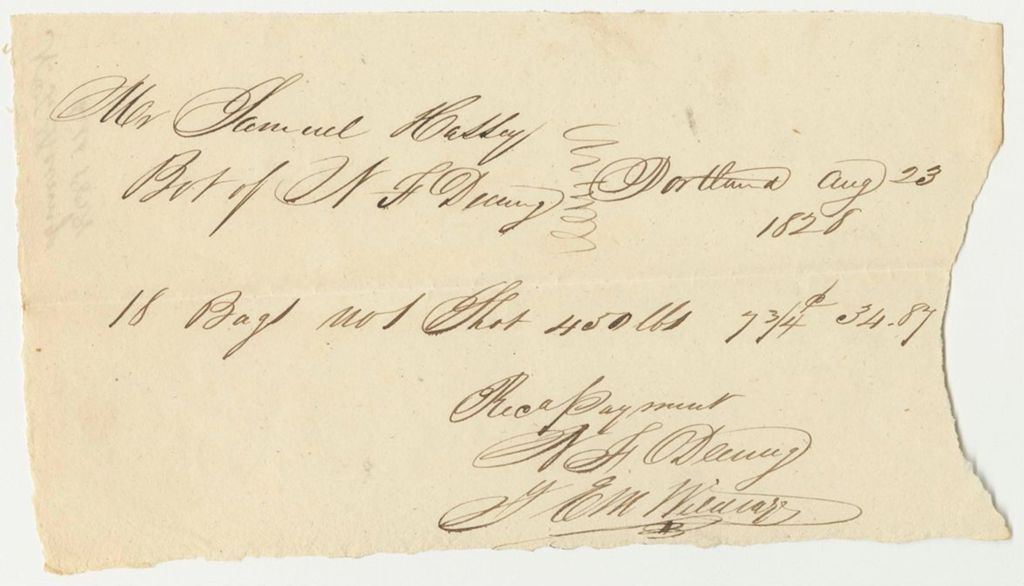 Mr Samuel Hassey
Bot of N F Deering Portland Aug 23
1828
18 Bags no 1 Shot 450 lbs 7 3/4 ¢ 34.87
Recd Payment
N F. Deering
E M